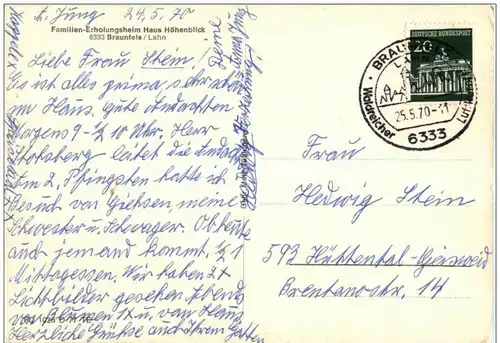 A. Jung 24.5.70
Familien-Erholungsheim Haus Höhenblick
6333 Braunfels / Lahn
Liebe Frau Stein,
Es ist alles prima, sehr schön
im Haus, gute Andachten
Morgens 9 - ½ 10 Uhr, Herr
leitet die Andacht.
Am 2. Pfingsten hatte ich
Besuch von Gießen meine
Schwester u. Schwager. Ob heute
auch jemand kommt. ½ 1
Mittagessen. Wir haben 2x
Lichtbilder gesehen Abends
von Blumen 1x u. von Haus
Herzliche Grüße auch Ihrem Gatten
Deine
Anna Jung
DEUTSCHE BUNDESPOST
20
25.5.70-11
Waldreicher Luft
6333
Frau
Hedwig Stein
593 Hüttental-Geisweid
Brentanostr. 14